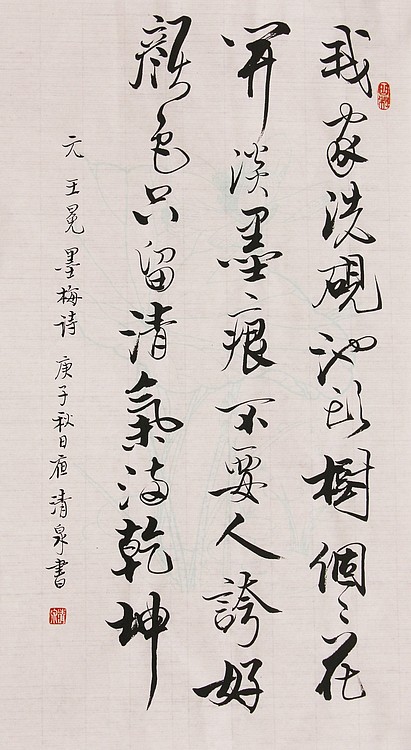 我家洗硯池頭樹個〻花
開淡墨痕不要人誇好
顏色只留清氣滿乾坤
元 王冕 墨梅詩 庚子秋日 清泉書